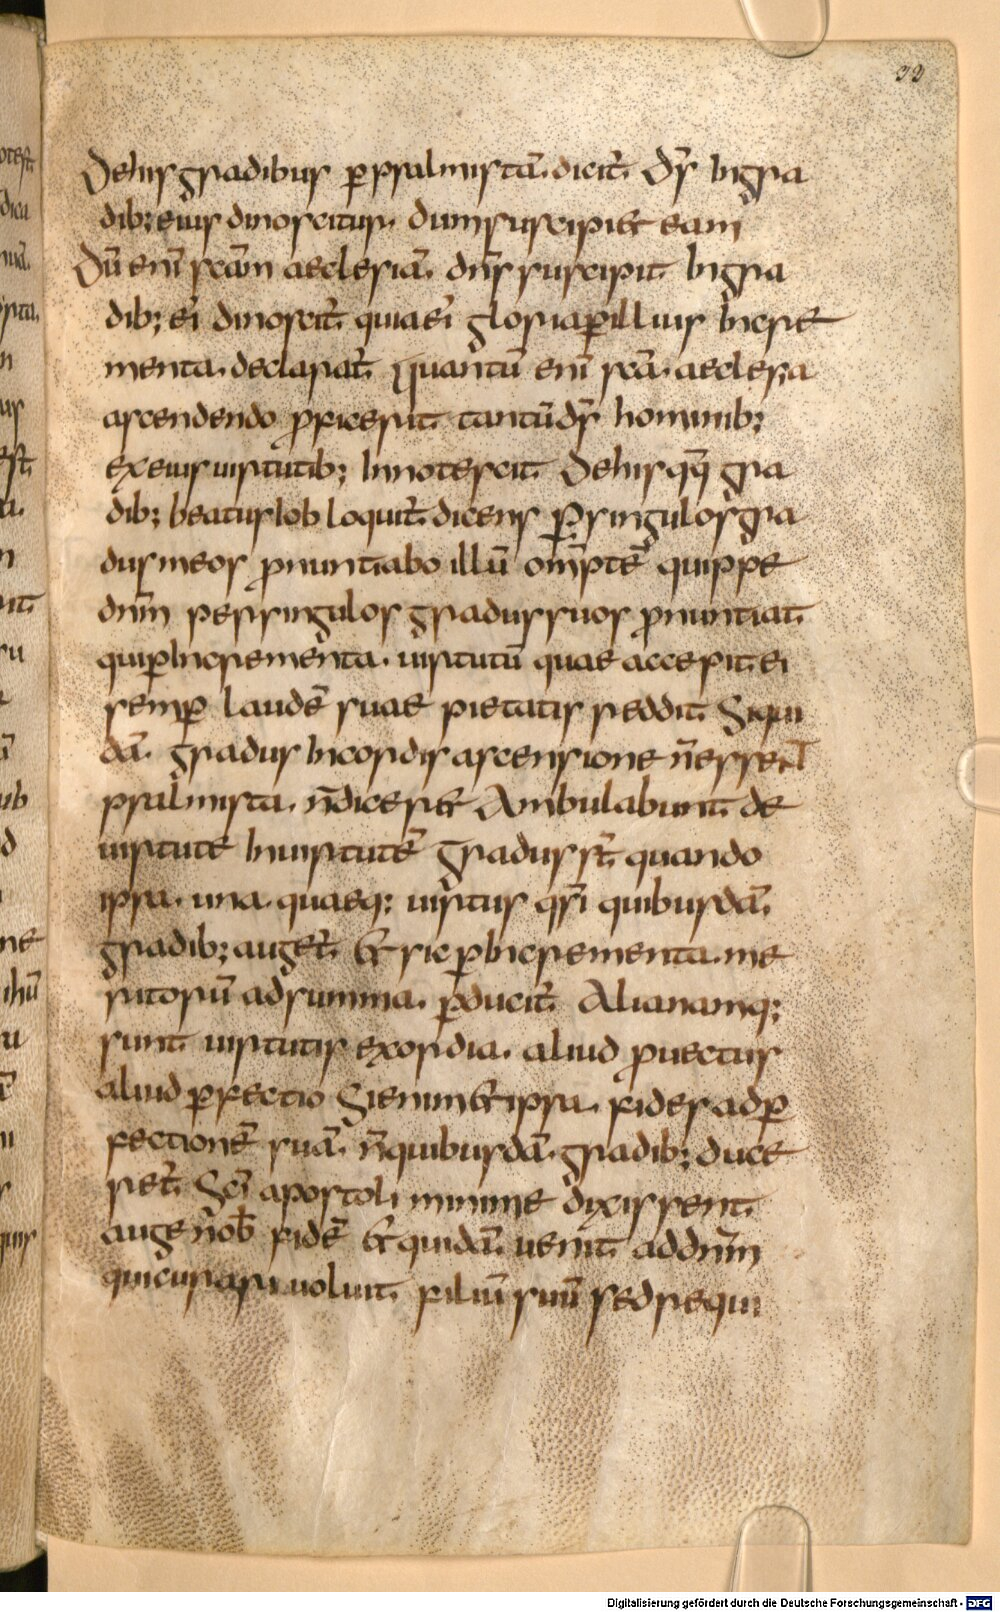 33
Dehis gradibus p̄ psalmistā. dicit̄. Dr̄ Ingra
dib; eius dinoscitur. dum susciperet eam
Dū enī scām aeclesiā. dn̄s suscipit Ingra
dib; eī dinoscit̄. quia eī gloria p̄ illius Incre
menta. declarat̄. Quantū enī scā. aeclesia
ascendendo p̄ficerit tantū dr̄ hominib;
ex eius uirtutib; Innotescit Dehis qq̄ gra
dib; beatus Iob loquit̄. dicens P̄singulos gra
dus meos p̄nuntiabo illū om̄ptē quippe
dnm̄ persingulos gradus suos p̄nuntiat
qui p̄ Incrementa. uirtutū quae accepit ei
semp̄ laudē suae pietatis reddit Siqui
dā. gradus Incordis ascensione n̄essent
psalmista. n̄diceret Ambulabunt de
uirtute Inuirtutē gradus st̄ quando
ipsa. una. quaeq; uirtus qsī quibusdā.
gradib; auget̄. Et sic p̄ Incrementa. me
ritorū adsumma. p̄ducit̄. Alia namq;
sunt uirtutis exordia. aliud p̄uectus
aliud p̄fectio Sienim et ipsa. fides adp̄
fectionē suā. n̄quibusdā. gradib; duce
ret̄. Scī apostoli minime dixissent
auge nob̄ fidē Et quidā. uenit addnm̄
qui curari uoluit filiū suū sed requi
Digitalisierung gefördert durch die Deutsche Forschungsgemeinschaft - DFG